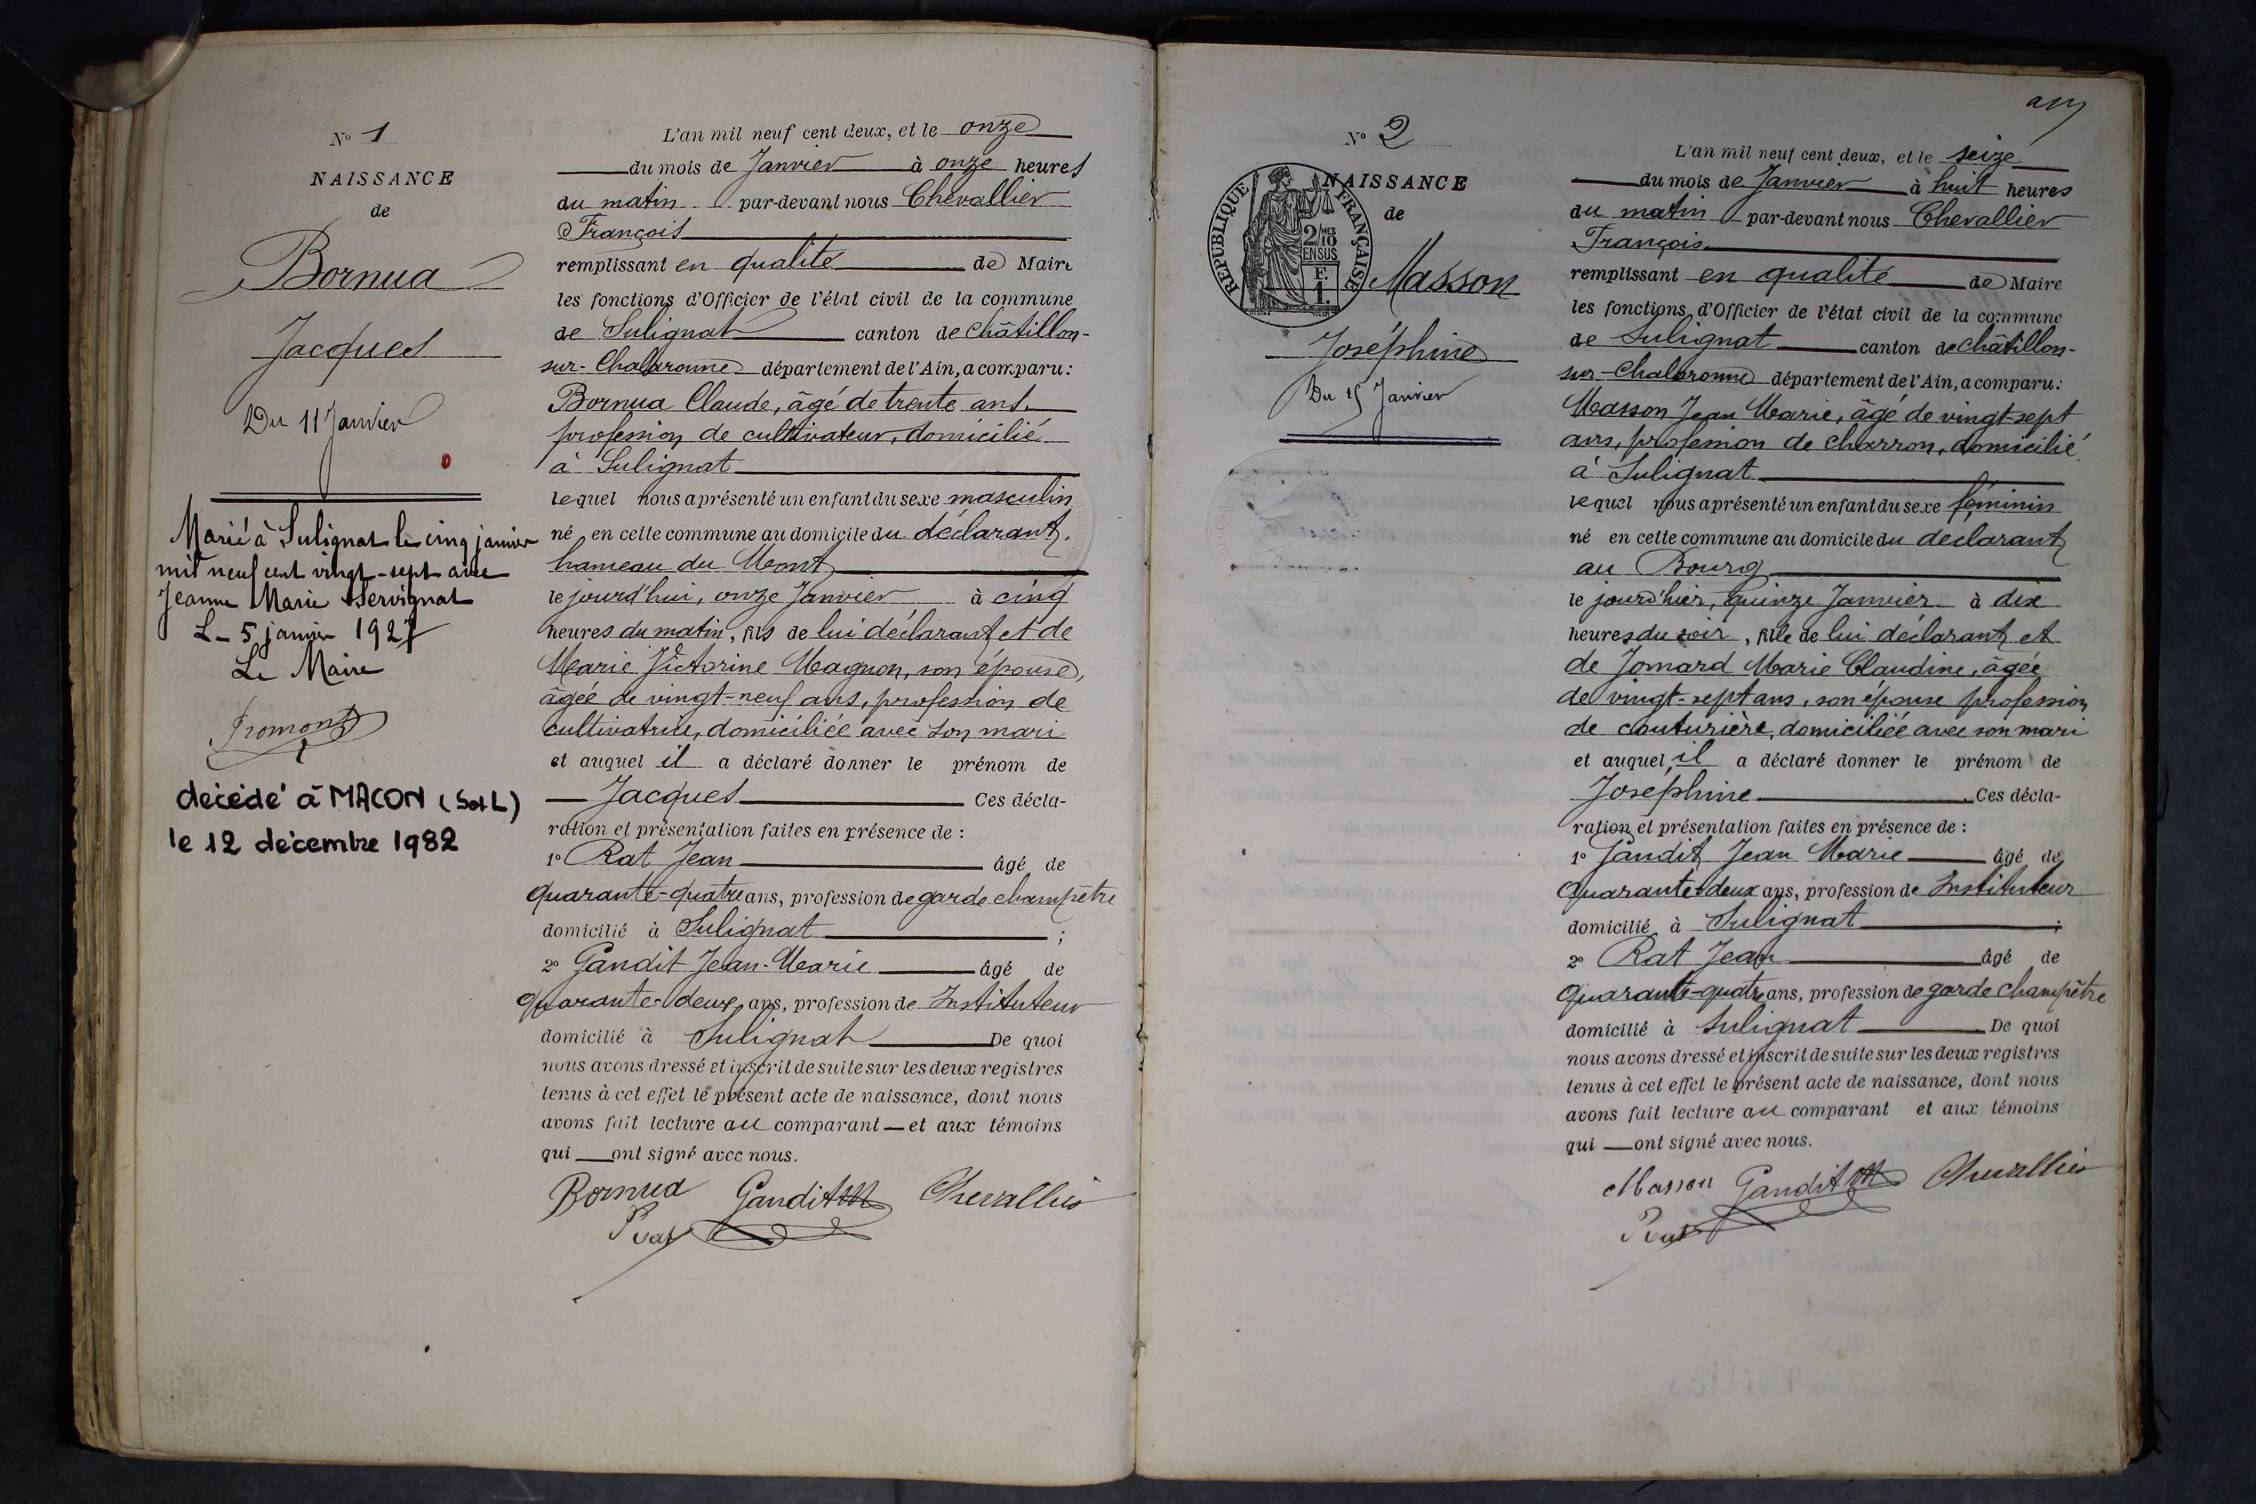 N° 1
NAISSANCE
de
Bornua
Jacques
Du 11 Janvier
Marié à Sulignat le cinq janvier
mil neuf cent vingt-sept avec
Jeanne Marie Servignat
Le 5 janvier 1927
Le Maire
Fromont
décédé à MACON (S et L)
le 12 décembre 1982
L'an mil neuf cent deux, et le onze
du mois de Janvier à onze heures
du matin par-devant nous Chevallier
François
remplissant en qualité de Maire
les fonctions d'Officier de l'état civil de la commune
de Sulignat canton de Châtillon-
sur-Chalaronne département de l'Ain, a comparu:
Bornua Claude, âgé de trente ans,
profession de cultivateur, domicilié
à Sulignat
lequel nous a présenté un enfant du sexe masculin
né en cette commune au domicile du déclarant,
hameau du Mont
le jourd'hui, onze Janvier à cinq
heures du matin, fils de lui déclarant et de
Marie Victorine Magnon, son épouse,
âgée de vingt-neuf ans, profession de
cultivatrice, domiciliée avec son mari
et auquel il a déclaré donner le prénom de
Jacques Ces décla-
ration et présentation faites en présence de :
1° Rat Jean âgé de
quarante-quatre ans, profession de garde champêtre
domicilié à Sulignat ;
2° Gandit Jean-Marie âgé de
quarante-deux ans, profession de Instituteur
domicilié à Sulignat De quoi
nous avons dressé et inscrit de suite sur les deux registres
tenus à cet effet le présent acte de naissance, dont nous
avons fait lecture au comparant et aux témoins
qui ont signé avec nous.
Bornua Gandit JM Chevallier
Rat
N° 2
NAISSANCE
de
RÉPUBLIQUE FRANÇAISE
2/10MES
EN SUS
F.
1.
Masson
Joséphine
Du 15 Janvier
L'an mil neuf cent deux, et le seize
du mois de Janvier à huit heures
du matin par-devant nous Chevallier
François
remplissant en qualité de Maire
les fonctions d'Officier de l'état civil de la commune
de Sulignat canton de Châtillon-
sur-Chalaronne département de l'Ain, a comparu:
Masson Jean Marie, âgé de vingt-sept
ans, profession de charron, domicilié
à Sulignat
lequel nous a présenté un enfant du sexe féminin
né en cette commune au domicile du déclarant
au Bourg
le jourd'hier, quinze Janvier à dix
heures du soir, fille de lui déclarant et
de Jomard Marie Claudine, âgée
de vingt-sept ans, son épouse profession
de couturière, domiciliée avec son mari
et auquel il a déclaré donner le prénom de
Joséphine Ces décla-
ration et présentation faites en présence de :
1° Gandit Jean Marie âgé de
quarante-deux ans, profession de Instituteur
domicilié à Sulignat ;
2° Rat Jean âgé de
quarante-quatre ans, profession de garde champêtre
domicilié à Sulignat De quoi
nous avons dressé et inscrit de suite sur les deux registres
tenus à cet effet le présent acte de naissance, dont nous
avons fait lecture au comparant et aux témoins
qui ont signé avec nous.
Masson Gandit JM Chevallier
Rat